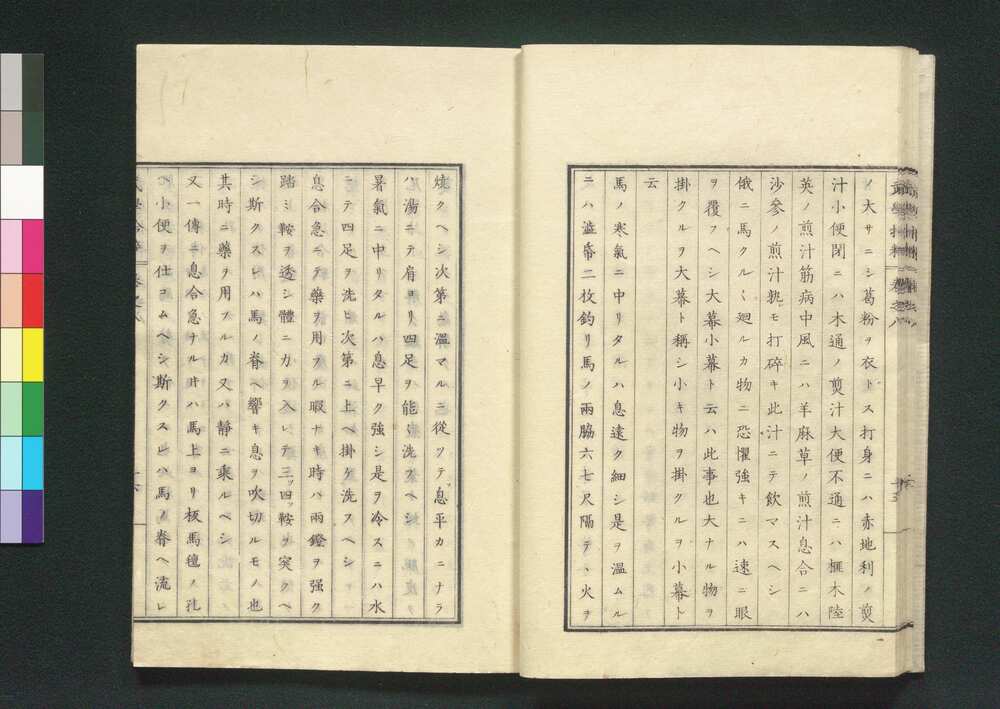 ノ大サニシ葛粉ヲ衣トス打身ニハ赤地利ノ煎
汁小便閉ニハ木通ノ煎汁大便不通ニハ榧木陸
英ノ煎汁筋病中風ニハ羊麻草ノ煎汁息合ニハ
沙參ノ煎汁孰モ打碎キ此汁ニテ飲マスヘシ
俄ニ馬クルく廻ルカ物ニ恐懼強キニハ速ニ眼
ヲ覆フヘシ大幕小幕ト云ハ此事也大ナル物ヲ
掛クルヲ大幕ト稱シ小キ物ヲ掛クルヲ小幕ト
云
馬ノ寒氣ニ中リタルハ息遠ク細シ是ヲ溫ムル
ニハ盜帋二枚釣リ馬ノ兩脇六七尺隔テヽ火ヲ
燒クヘシ次第ニ溫マルニ從ツテ息平カニナラ
ハ湯ニテ肩ヨリ四足ヲ能く洗フヘシ
暑氣ニ中リタルハ息早ク強シ是ヲ冷スニハ水
ニテ四足ヲ洗ヒ次第ニ上ヘ掛ケ洗スヘシ
息合急ニテ藥ヲ用フル暇ナキ時ハ兩鐙ヲ强ク
踏ミ鞍ヲ透シ體ニ力ヲ入レテ三ッ四ッ鞍ヲ突クヘ
シ斯クスレハ馬ノ脊ヘ響キ息ヲ吹切ルモノ也
其時ニ藥ヲ用フルカ又ハ靜ニ乘ルベシ
又一傳ニ息合急ナル片ハ馬上ヨリ板馬氈ノ孔
ヘ小便ヲ仕コムヘシ斯クスレハ馬ノ脊ヘ流レ